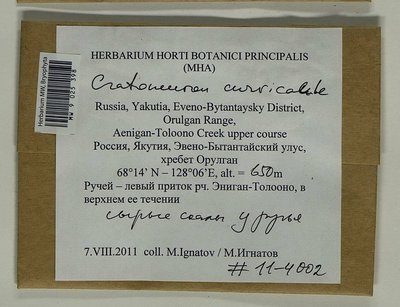 Herbarium MW, Bryophyta
MW 9 025 398
HERBARIUM HORTI BOTANICI PRINCIPALIS
(MHA)
Cratoneuron curvicaule
Russia, Yakutia, Eveno-Bytantaysky District,
Orulgan Range,
Aenigan-Toloono Creek upper course
Россия, Якутия, Эвено-Бытантайский улус,
хребет Орулган
68°14’ N – 128°06’E, alt. = 650m
Ручей – левый приток рч. Эниган-Толооно, в
верхнем ее течении
сырые скалы у ручья
7.VIII.2011 coll. M.Ignatov / М.Игнатов
# 11-4002